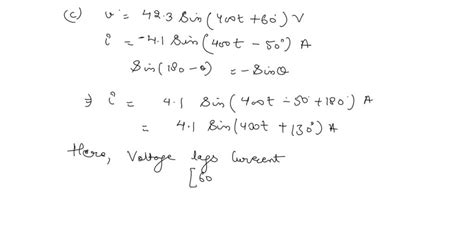 (c) v = 42.3 Sin(400t + 60°) V
i = -4.1 Sin(400t - 50°) A
Sin(180 - θ) = - Sinθ
⇒ i = 4.1 Sin(400t - 50 + 180°) A
= 4.1 Sin(400t + 130°) A
Here, Voltage lags Current
[60